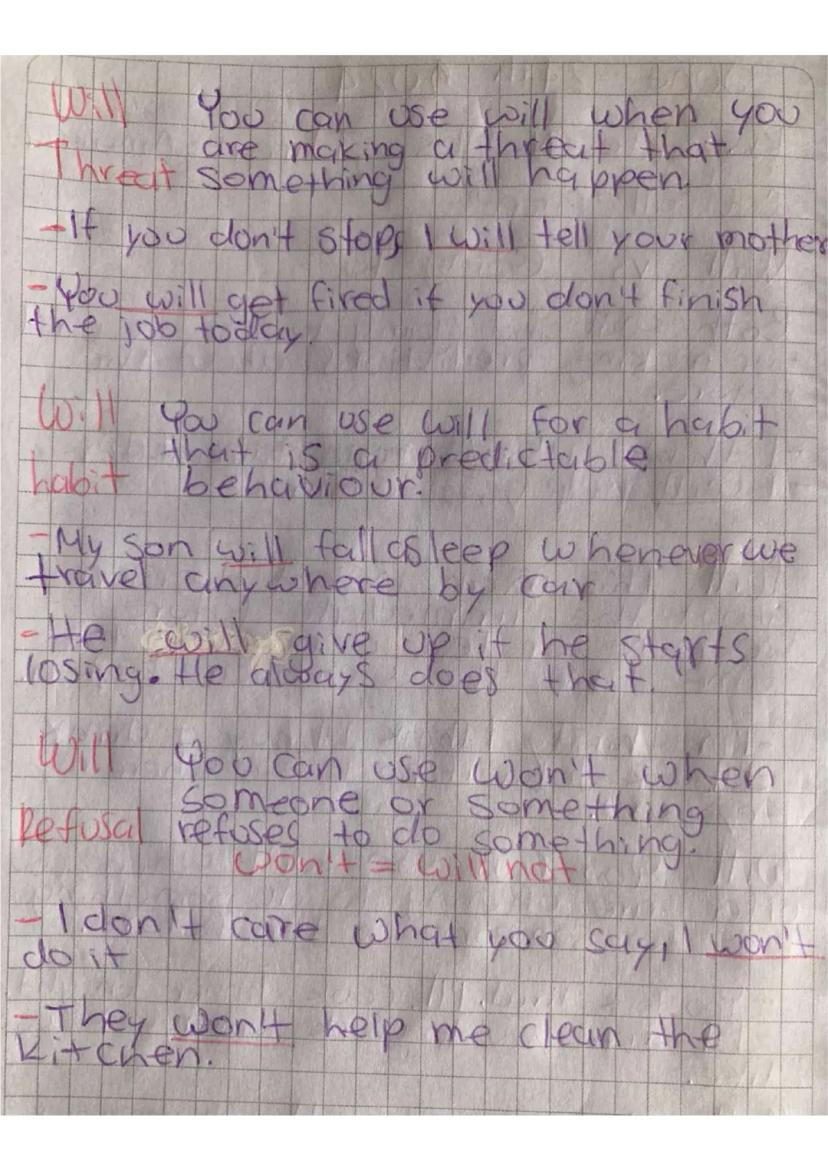 Will You can use will when you
are making a threat that
Threat something will happen
-If you don't stop, I will tell your mother
-You will get fired if you don't finish
the job today.
Will You can use will for a habit
that is a predictable
habit behaviour.
-My son will fall asleep whenever we
travel anywhere by car
-He will give up if he starts
losing. He always does that.
Will You can use won't when
someone or something
Refusal refuses to do something.
won't = will not
-I don't care what you say, I won't
do it
-They won't help me clean the
kitchen.